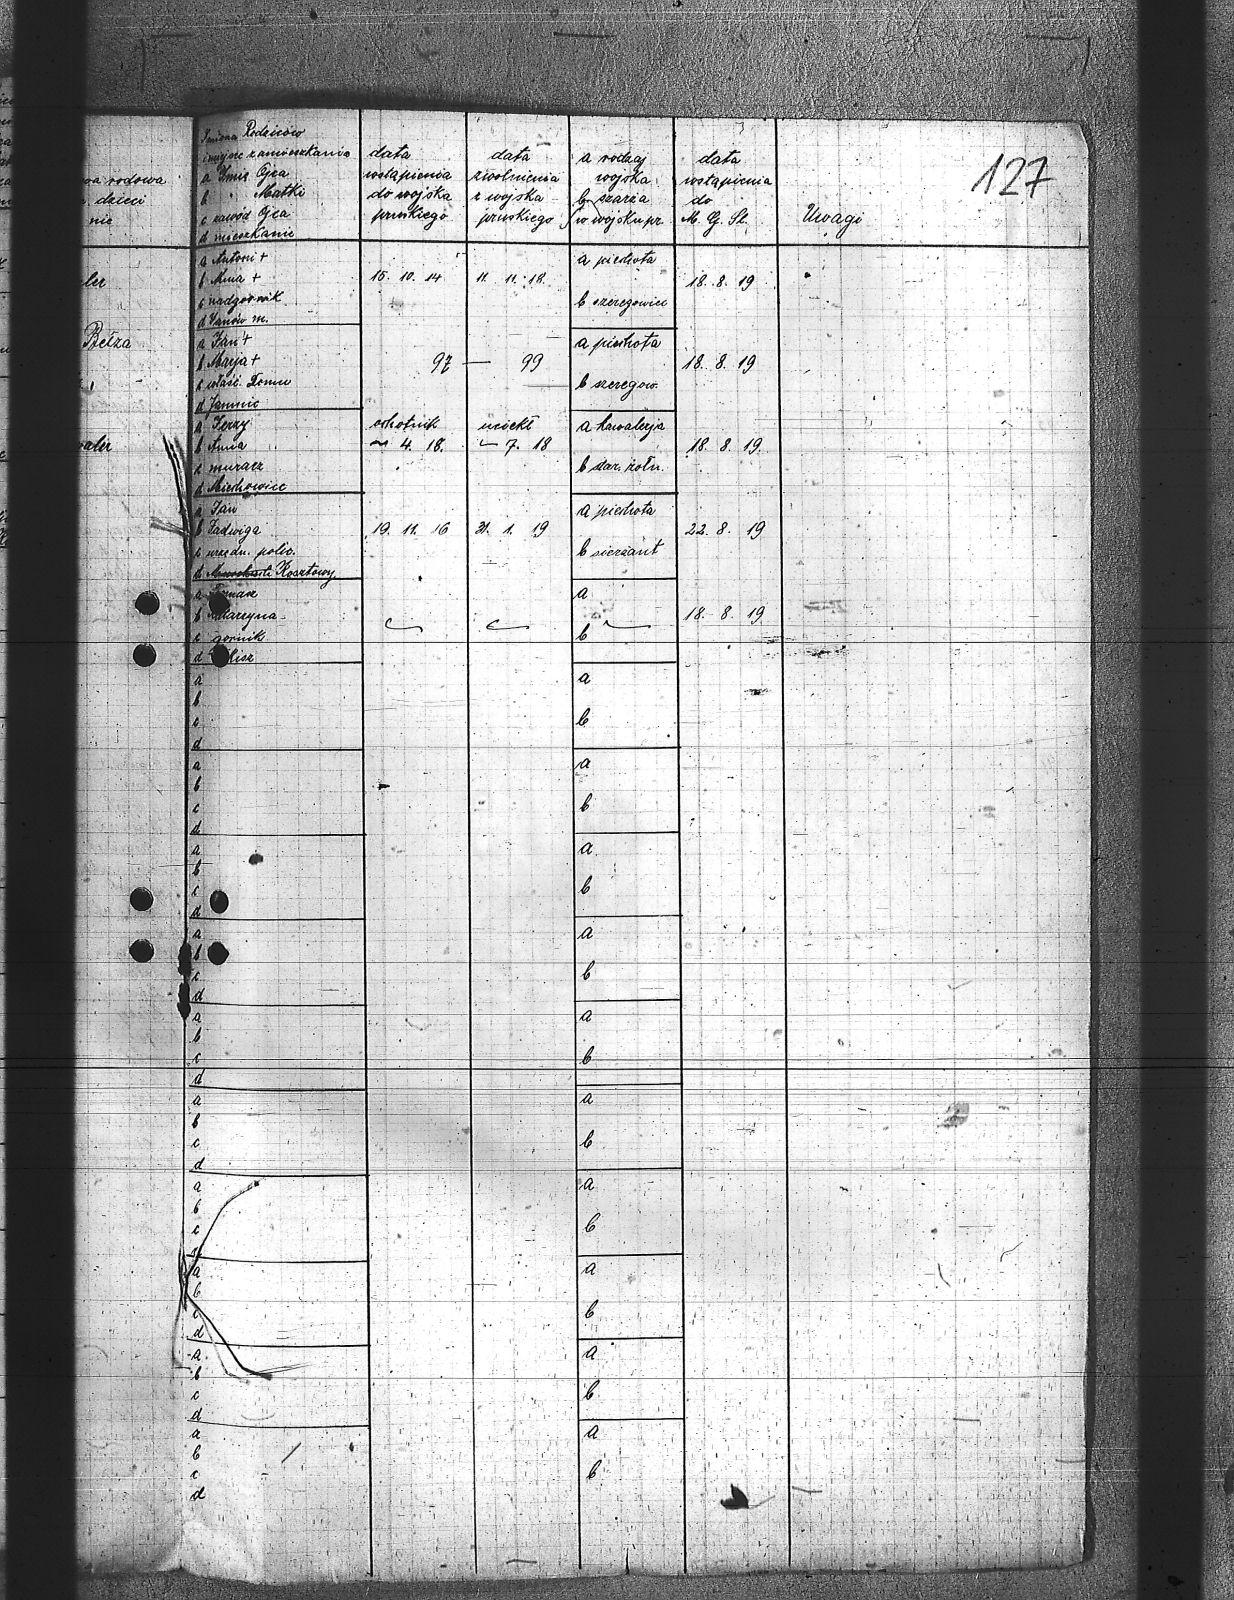 127
Imiona Rodziców
i miejsc zamieszkania
a Imię Ojca
b " Matki
c zawód Ojca
d mieszkanie
data
wstąpienia
do wojska
pruskiego
data
zwolnienia
z wojska
pruskiego
a rodzaj
wojska
b szarża
w wojsku pr.
data
wstąpienia
do
M. G. Śl.
Uwagi
rodowa
dzieci
nie
ler
Bełza
waler
a Antoni +
b Anna +
c nadgórnik
d Janów m.
15. 10. 14
11. 11. 18
a piechota
b szeregowiec
18. 8. 19
a Jan +
b Marja +
c właśc. Domu
d Jamnic
97 — 99
a piechota
b szeregow.
18. 8. 19
a Jerzy
b Anna
c murarz
d Miechowice
ochotnik
4. 18.
uciekł
7. 18
a kawalerja
b star. żołn.
18. 8. 19.
a Jan
b Jadwiga
c urzędn. polic.
d Kosztowy
19. 11. 16
31. 1. 19
a piechota
b sierżant
22. 8. 19
a Tomasz
b Katarzyna
c górnik
d
a
b
18. 8. 19
a
b
c
d
a
b
a
b
c
d
a
b
a
b
c
d
a
b
a
b
c
d
a
b
a
b
c
d
a
b
a
b
c
d
a
b
a
b
c
d
a
b
a
b
c
d
a
b
a
b
c
d
a
b
a
b
c
d
a
b